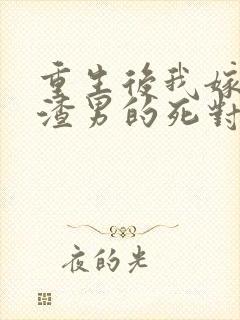 重生後我嫁
渣男的死對
夜的光